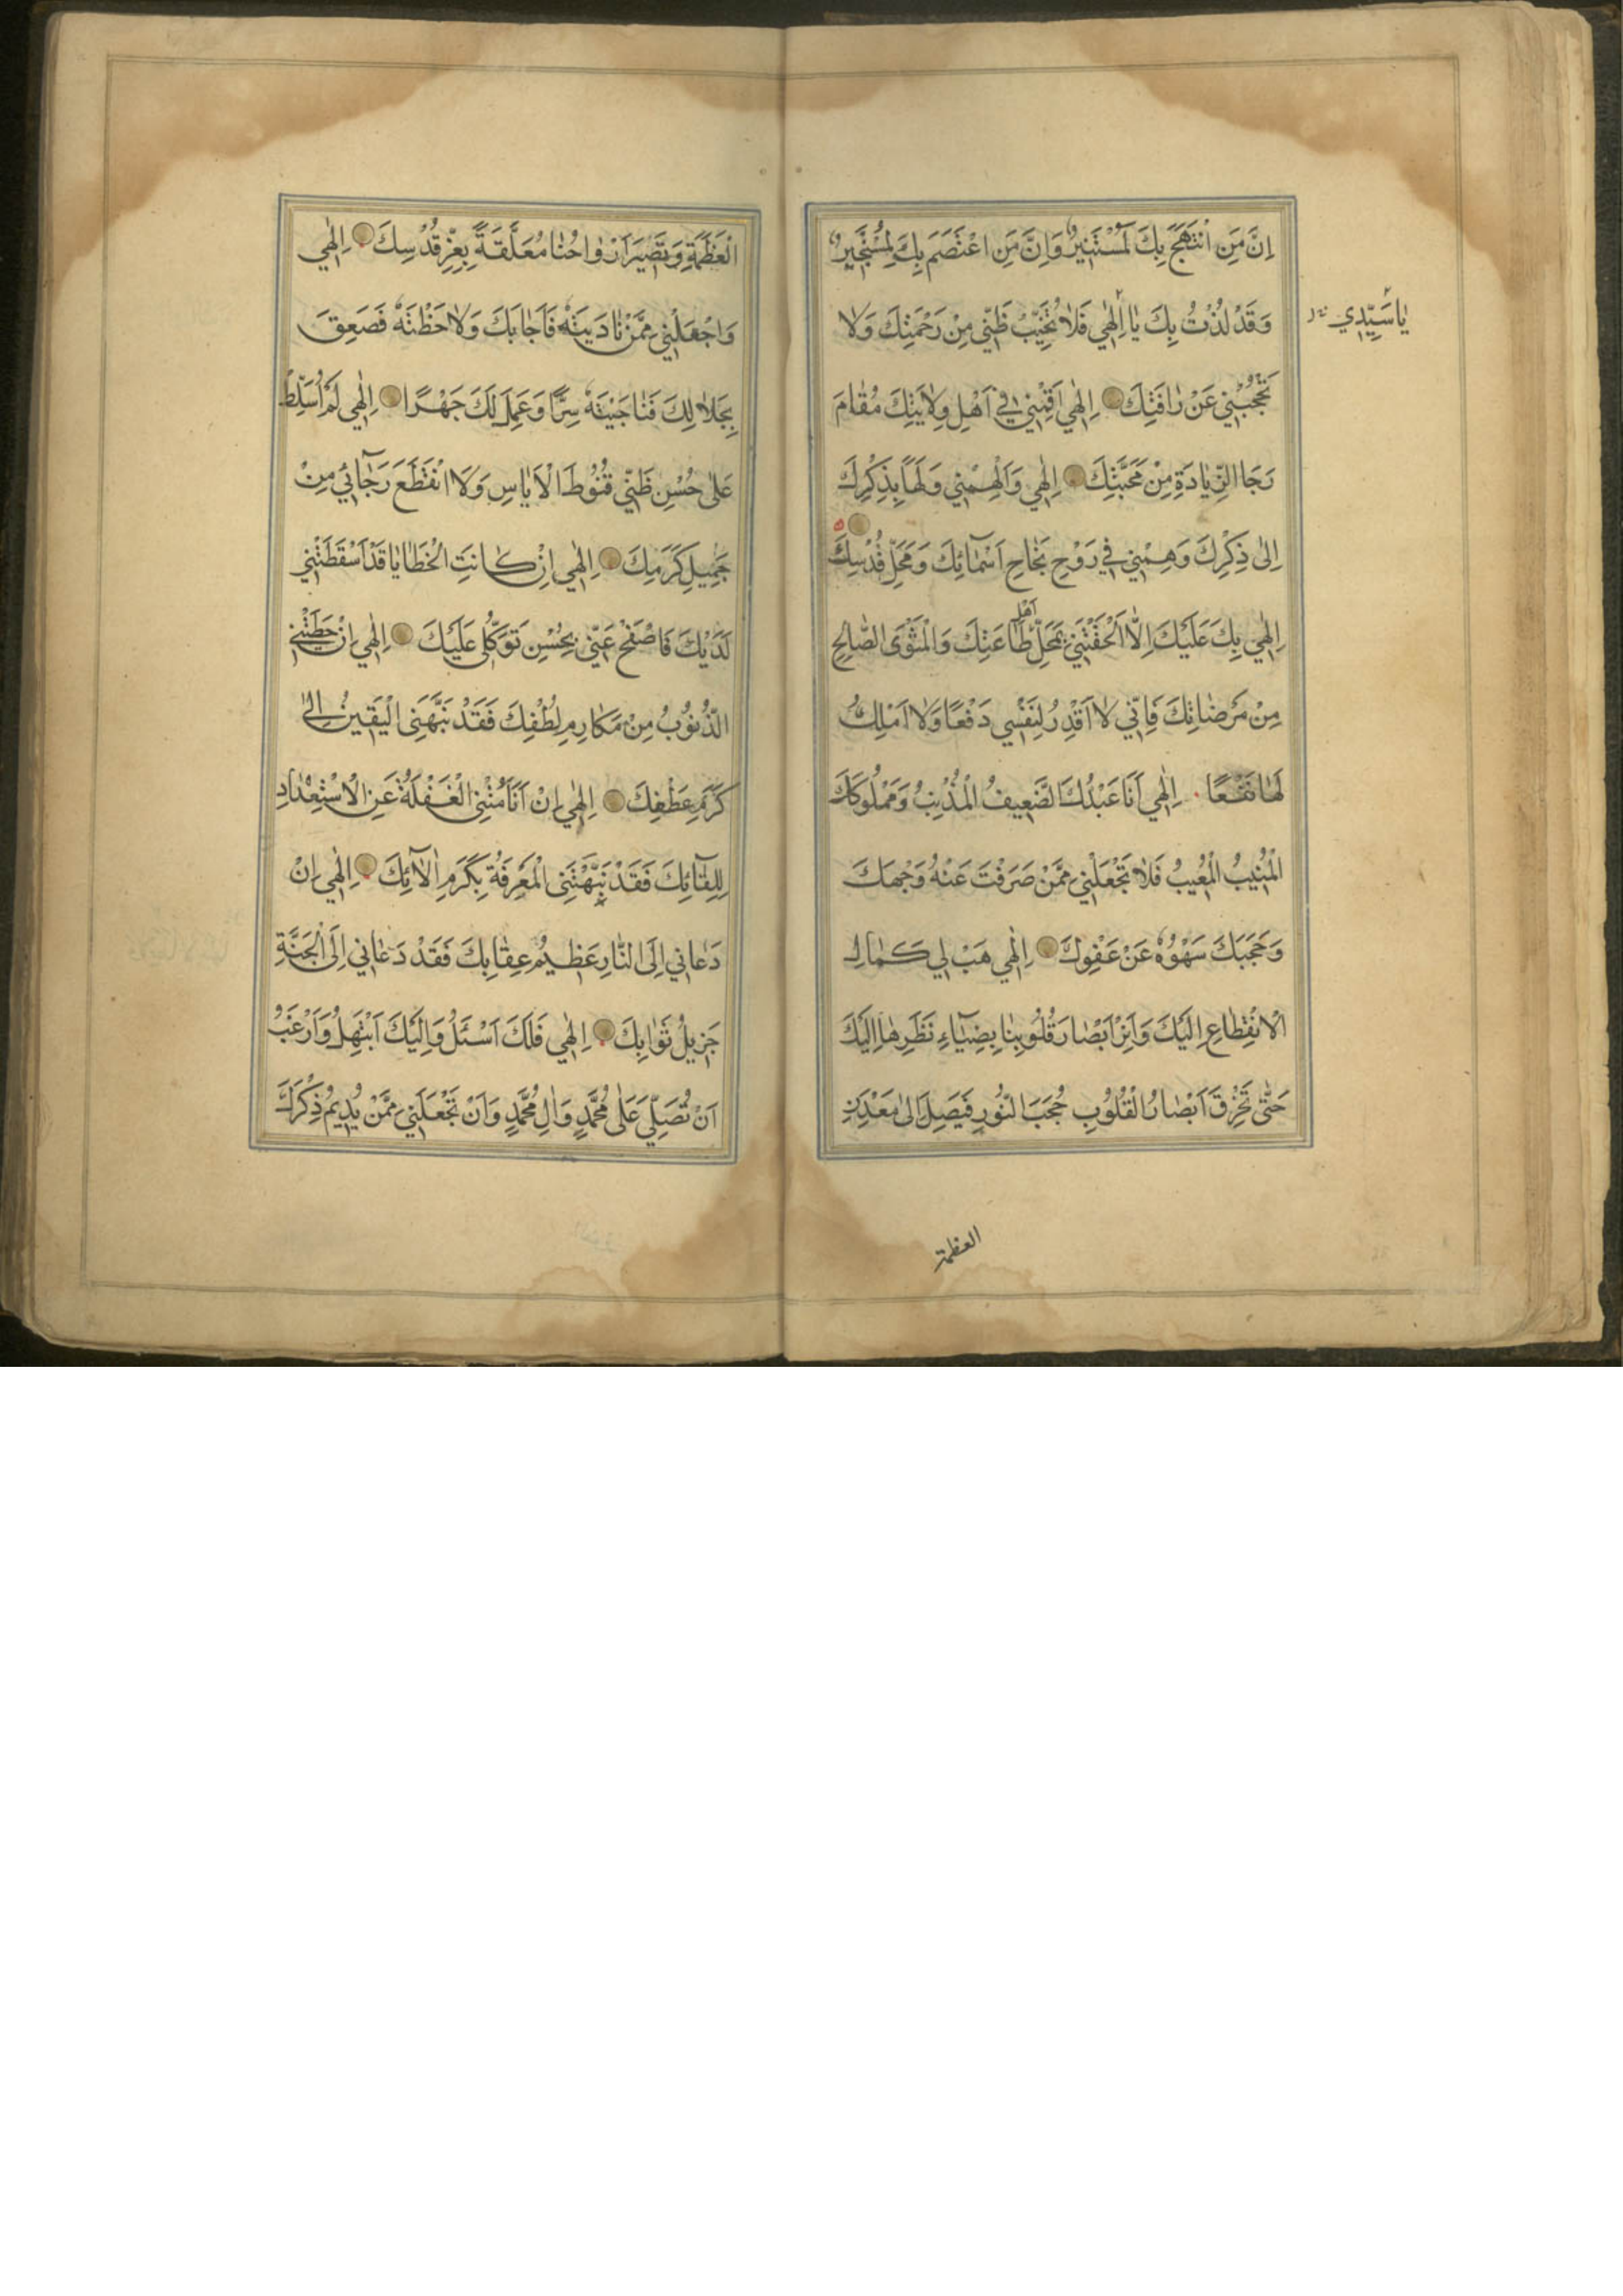 اِنَّ مَنِ انْتَهَجَ بِكَ لَمُسْتَنيرٌ وَاِنَّ مَنِ اعْتَصَمَ بِكَ لَمُسْتَجيرٌ
وَقَدْ لُذْتُ بِكَ يٰا اِلٰهي فَلاٰ تُخَيِّبْ ظَنّي مِنْ رَحْمَتِكَ وَلا
يٰا سَيِّدي
تَحْجُبْني عَنْ رَافَتِكَ اِلٰهي اَقِمْني في اَهْلِ وِلاٰيَتِكَ مُقٰامَ
رَجَا الزِّيٰادَةِ مِنْ مَحَبَّتِكَ اِلٰهي وَاَلْهِمْني وَلَهًا بِذِكْرِكَ
اِلىٰ ذِكْرِكَ وَهِمَّني في رَوْحِ نَجٰاحِ اَسْمٰائِكَ وَمَحَلِّ قُدْسِكَ
اِلٰهي بِكَ عَلَيْكَ اِلاّٰ اَلْحَقْتَني بِمَحَلِّ اَهْلِ طٰاعَتِكَ وَالْمَثْوَى الصّٰالِحِ
مِنْ مَرْضٰاتِكَ فَاِنّي لاٰ اَقْدِرُ لِنَفْسي دَفْعًا وَلاٰ اَمْلِكُ
لَهٰا نَفْعًا اِلٰهي اَنَا عَبْدُكَ الضَّعيفُ الْمُذْنِبُ وَمَمْلُوكُكَ
الْمُنيبُ الْمُعيبُ فَلاٰ تَجْعَلْني مِمَّنْ صَرَفْتَ عَنْهُ وَجْهَكَ
وَحَجَبَكَ سَهْوُهُ عَنْ عَفْوِكَ اِلٰهي هَبْ لي كَمٰالَ
الْاِنْقِطٰاعِ اِلَيْكَ وَاَنِرْ اَبْصٰارَ قُلُوبِنٰا بِضِيٰاءِ نَظَرِهٰا اِلَيْكَ
حَتّىٰ تَخْرِقَ اَبْصٰارُ الْقُلُوبِ حُجَبَ النُّورِ فَيَصِلَ اِلىٰ مَعْدِنِ
العظمة
الْعَظَمَةِ وَتَصيرَ اَرْوٰاحُنٰا مُعَلَّقَةً بِعِزِّ قُدْسِكَ اِلٰهي
وَاجْعَلْني مِمَّنْ نٰادَيْتَهُ فَاَجٰابَكَ وَلاٰحَظْتَهُ فَصَعِقَ
بِجَلاٰلِكَ فَنٰاجَيْتَهُ سِرًّا وَعَمِلَ لَكَ جَهْرًا اِلٰهي لَمْ اُسَلِّطْ
عَلىٰ حُسْنِ ظَنّي قُنُوطَ الْاَيٰاسِ وَلاَ انْقَطَعَ رَجٰائي مِنْ
جَميلِ كَرَمِكَ اِلٰهي اِنْ كٰانَتِ الْخَطٰايٰا قَدْ اَسْقَطَتْني
لَدَيْكَ فَاصْفَحْ عَنّي بِحُسْنِ تَوَكُّلي عَلَيْكَ اِلٰهي اِنْ حَطَّتْني
الذُّنُوبُ مِنْ مَكٰارِمِ لُطْفِكَ فَقَدْ نَبَّهَنِى الْيَقينُ اِلىٰ
كَرَمِ عَطْفِكَ اِلٰهي اِنْ اَنَامَتْنِى الْغَفْلَةُ عَنِ الْاِسْتِعْدٰادِ
لِلِقٰائِكَ فَقَدْ نَبَّهَتْنِى الْمَعْرِفَةُ بِكَرَمِ اٰلاٰئِكَ اِلٰهي اِنْ
دَعٰاني اِلَى النّٰارِ عَظيمُ عِقٰابِكَ فَقَدْ دَعٰاني اِلَى الْجَنَّةِ
جَزيلُ ثَوٰابِكَ اِلٰهي فَلَكَ اَسْئَلُ وَاِلَيْكَ اَبْتَهِلُ وَاَرْغَبُ
اَنْ تُصَلِّيَ عَلىٰ مُحَمَّدٍ وَاٰلِ مُحَمَّدٍ وَاَنْ تَجْعَلَني مِمَّنْ يُديمُ ذِكْرَكَ